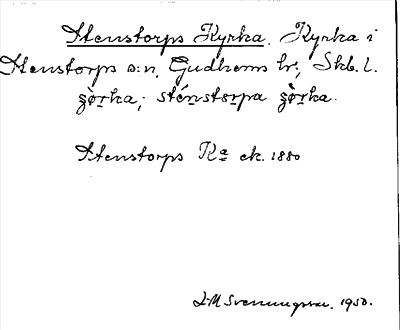 Stenstorps Kyrka. Kyrka i
Stenstorps s:n, Gudhems hr; Skb. l.
ʂø̀r̲ka; sténstɵr̲pa ʂø̀r̲ka.
Stenstorps Ka ek. 1880
J.M. Svenungsson. 1950.